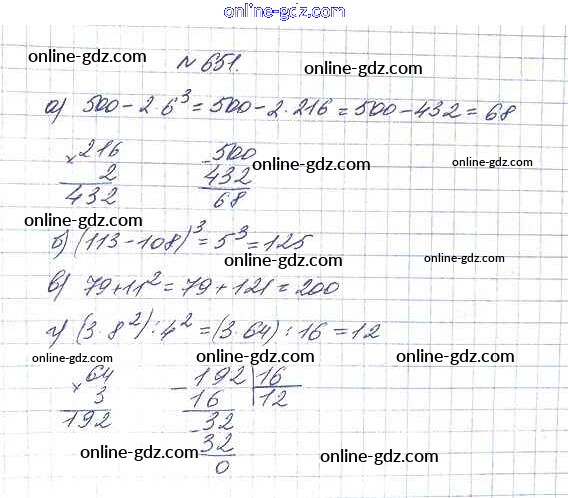 online-gdz.com
online-gdz.com № 651. online-gdz.com
а) 500 - 2 · 6³ = 500 - 2 · 216 = 500 - 432 = 68
× 216 - 500
2 432 online-gdz.com online-gdz.com
432 68
online-gdz.com
б) (113 - 108)³ = 5³ = 125
online-gdz.com
в) 79 + 11² = 79 + 121 = 200
online-gdz.com
г) (3 · 8²) : 4² = (3 · 64) : 16 = 12
online-gdz.com online-gdz.com online-gdz.com
× 64 - 192 | 16
3 16 12
192 - 32
32
online-gdz.com online-gdz.com
0